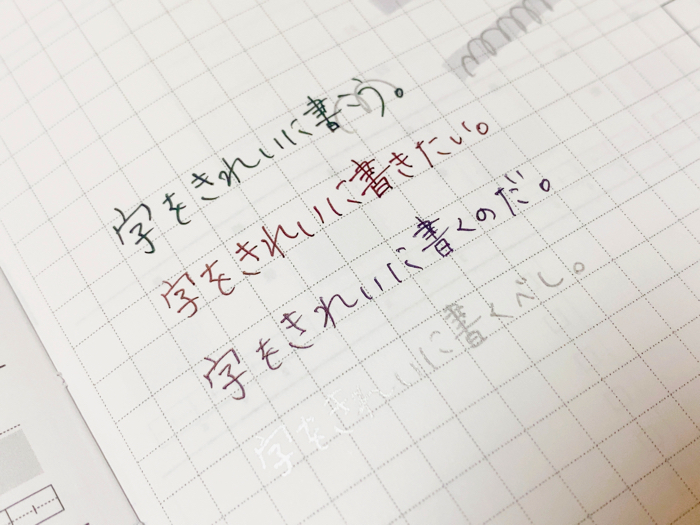 字をきれいに書こう。
字をきれいに書きたい。
字をきれいに書くのだ。
字をきれいに書くべし。